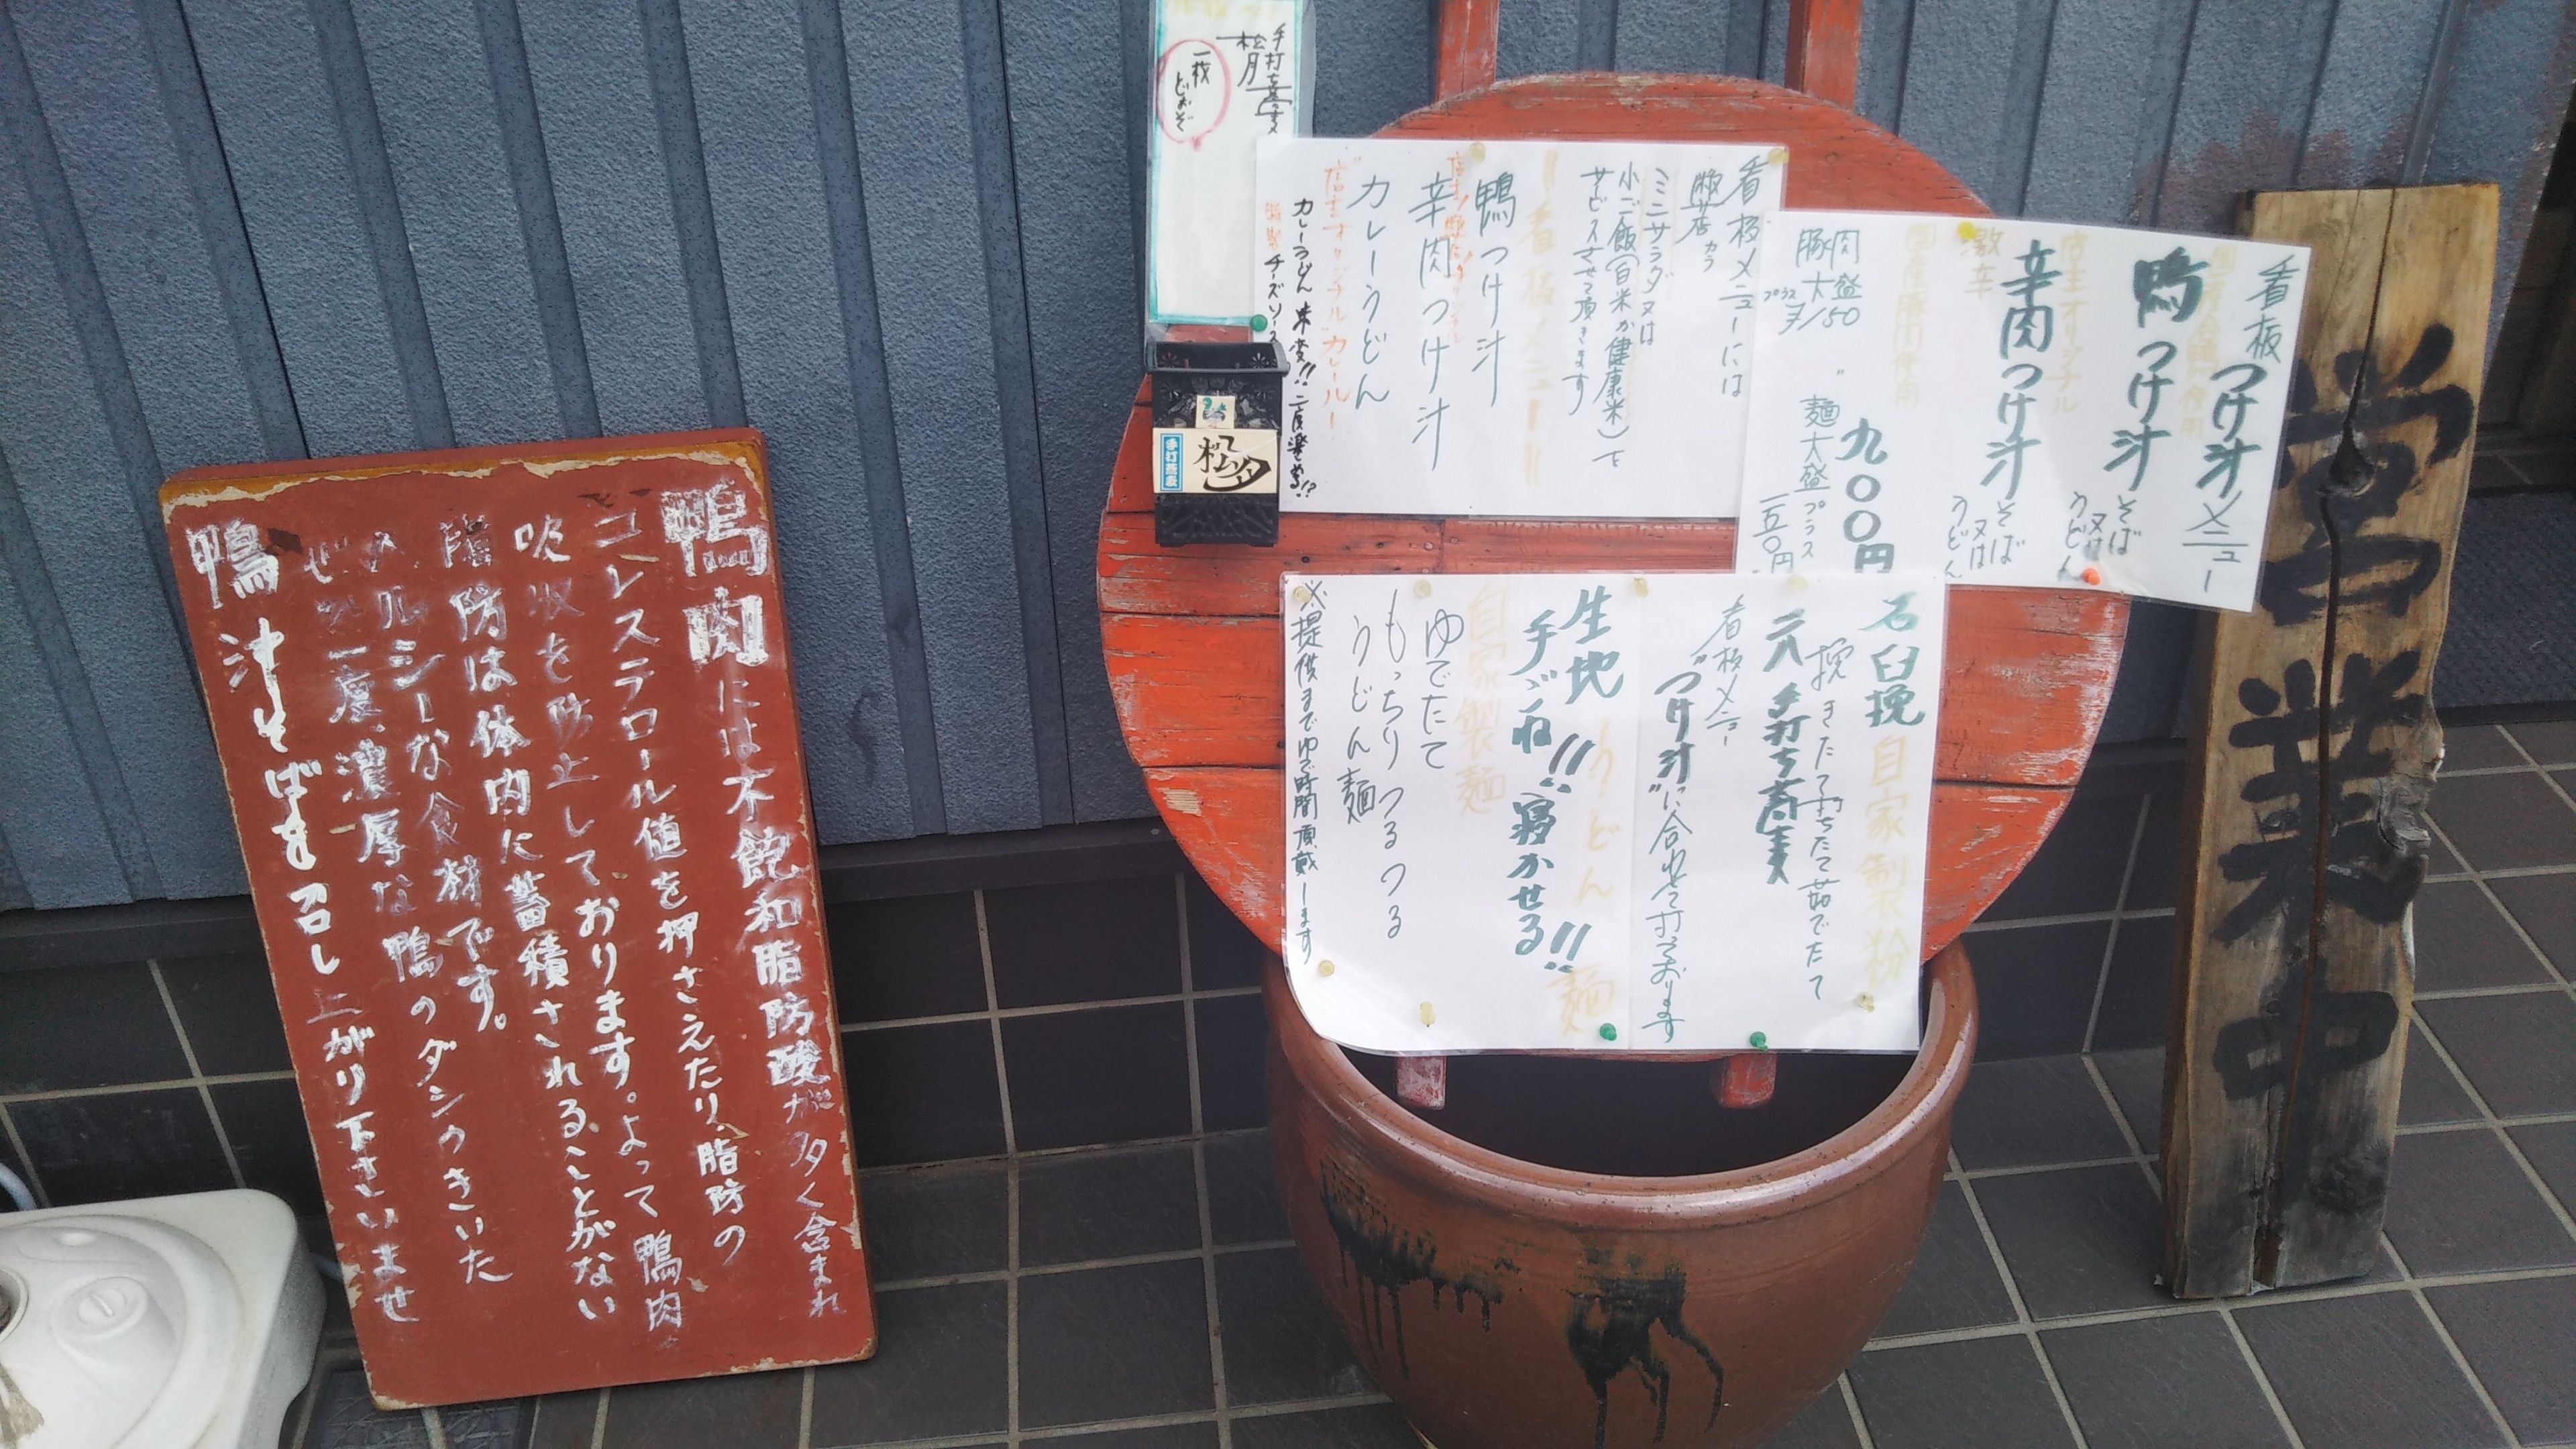 営業中
看板つけ汁メニュー
国産合鴨使用
鴨つけ汁
そば
又は
うどん
店主オリジナル
辛肉つけ汁
そば
又は
うどん
激辛
国産豚肉使用
九〇〇円
肉大盛
豚
プラス
〃
麺大盛
プラス
一五〇円
看板メニューには
弊店から
ミニサラダ又は
小ご飯(白米か健康米)を
サービスさせて頂きます
〃看板メニュー〃
鴨つけ汁
辛肉つけ汁
カレーうどん
店主オリジナルカレールー!
カレーうどん
味変!!
二度楽しむ!?
チーズソース
手打蕎麦
松月
一枚
どおぞ
手打蕎麦
石臼挽自家製粉
挽きたて打ちたて茹でたて
二八手打ち蕎麦
看板メニュー
"つけ汁"に合わせて打っております
生地うどん麺
手ごね!!寝かせる!!
自家製麺
ゆでたて
もっちりつるつる
うどん麺
※提供までゆで時間頂戴します
鴨肉には不飽和脂防酸が多く含まれ
コレステロール値を押さえたり、脂防の
吸収を防止しております。よって鴨肉
脂防は体内に蓄積されることがない
ヘルシーな食材です。
ぜひ一度、濃厚な鴨のダシのきいた
鴨汁そばを召し上がり下さいませ